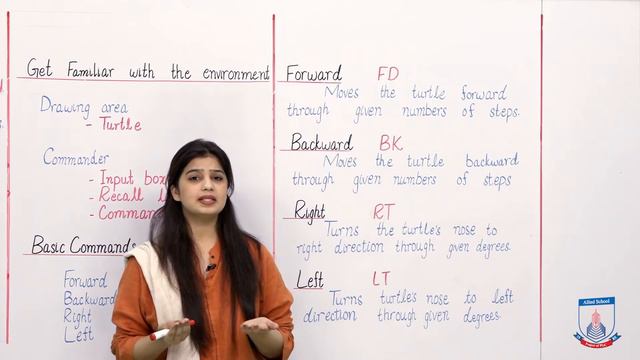 Get Familiar with the environment
Drawing area
- Turtle
Commander
- Input box
- Recall
- Command
Basic Commands
Forward
Backward
Right
Left
Forward FD
Moves the turtle forward
through given numbers of steps.
Backward BK
Moves the turtle backward
through given numbers of steps
Right RT
Turns the turtle's nose to
right direction through given degrees.
Left LT
Turns turtle's nose to left
direction through given degrees.
Allied School